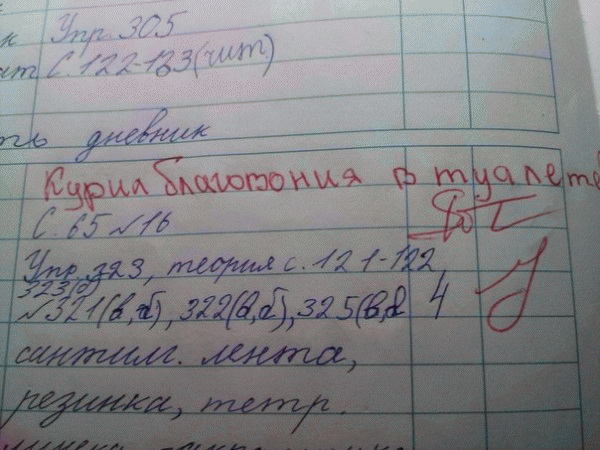 Упр 305
С. 122-123 (чит)
дневник
Курил благовония в туалете
С. 65 №16
Упр 323, теория с. 121-122,
№321(в,г), 322(в,г), 325(в,г 4
сантим. лента,
резинка, тетр.